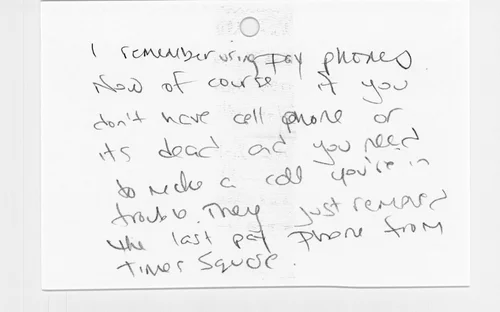 I remember using pay phones.
Now of course if you
don't have cell phone or
its dead and you need
to make a call you're in
trouble. They just removed
the last pay phone from
Times Square.